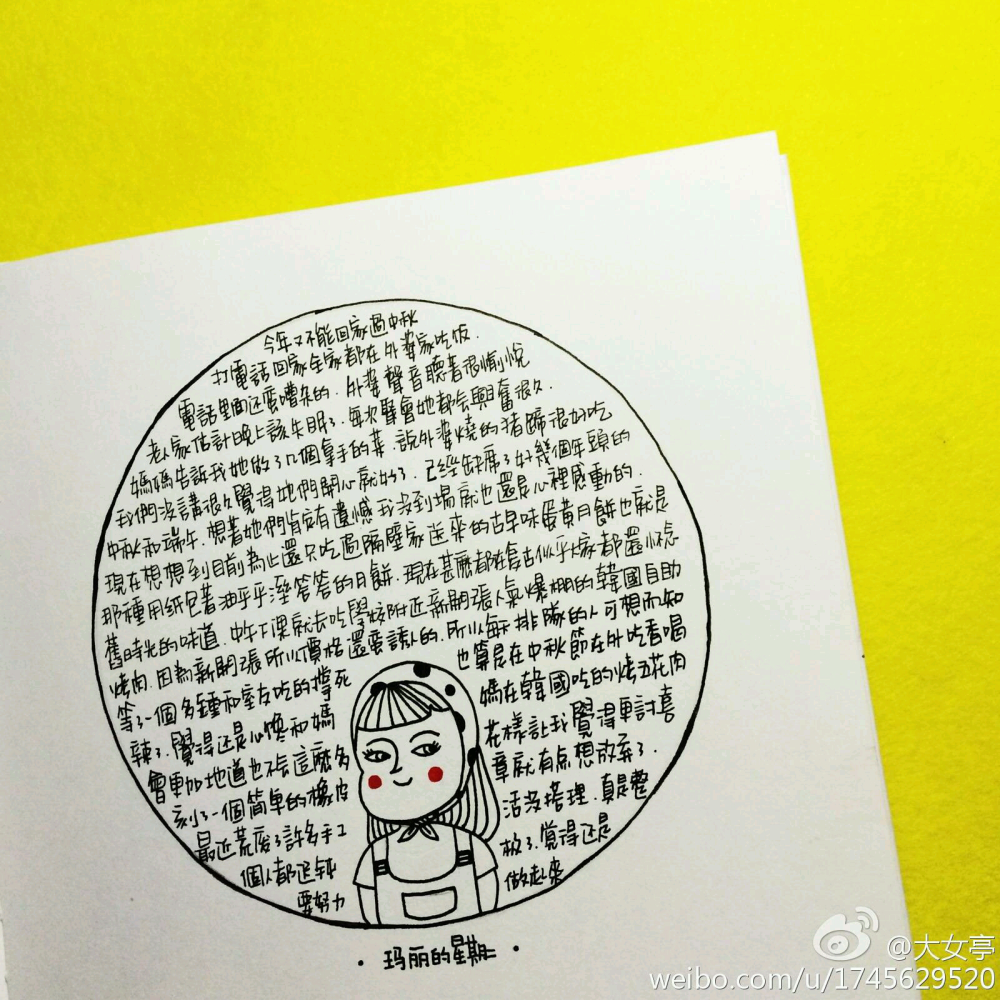 今年又不能回家過中秋
打電話回家全家都在外婆家吃饭.
電話里面还蛮嘈杂的.外婆聲音聽着很愉悅
老人家估計晚上該失眠了.每次聚會她都会興奮很久.
媽媽告訴我她做了几個拿手的菜.說外婆燒的猪蹄很好吃
我們沒講很久覺得她們開心就好了.已經缺席了好幾個年頭的
中秋和端午.想着她們肯定有遺憾我没到場就也還是心裡感動的.
現在想想到目前為止還只吃過隔壁家送來的古早味蛋黄月餅也就是
那種用纸包着油乎乎溼答答的月餅.現在甚麼都在復古似乎大家都還怀念
舊時光的味道.中午下课就去吃學校附近新開張人氣爆棚的韓國自助
烤肉.因為新開張所以價格還蛮誘人的.所以每排隊的人可想而知
等了一個多鍾和室友吃的撑死 也算是在中秋節在外吃香喝
辣了.覺得还是心馋和媽 媽在韓國吃的烤五花肉
會更加地道也不会這麼多 花樣让我覺得更討喜
刻了一個簡單的橡皮 章就有点想放弃了.
最近荒废了許多手工 活没搭理.真是整
個人都迟钝 极了.覺得还是
要努力 做起来
·玛丽的星期二·
@大女亭
weibo.com/u/1745629520